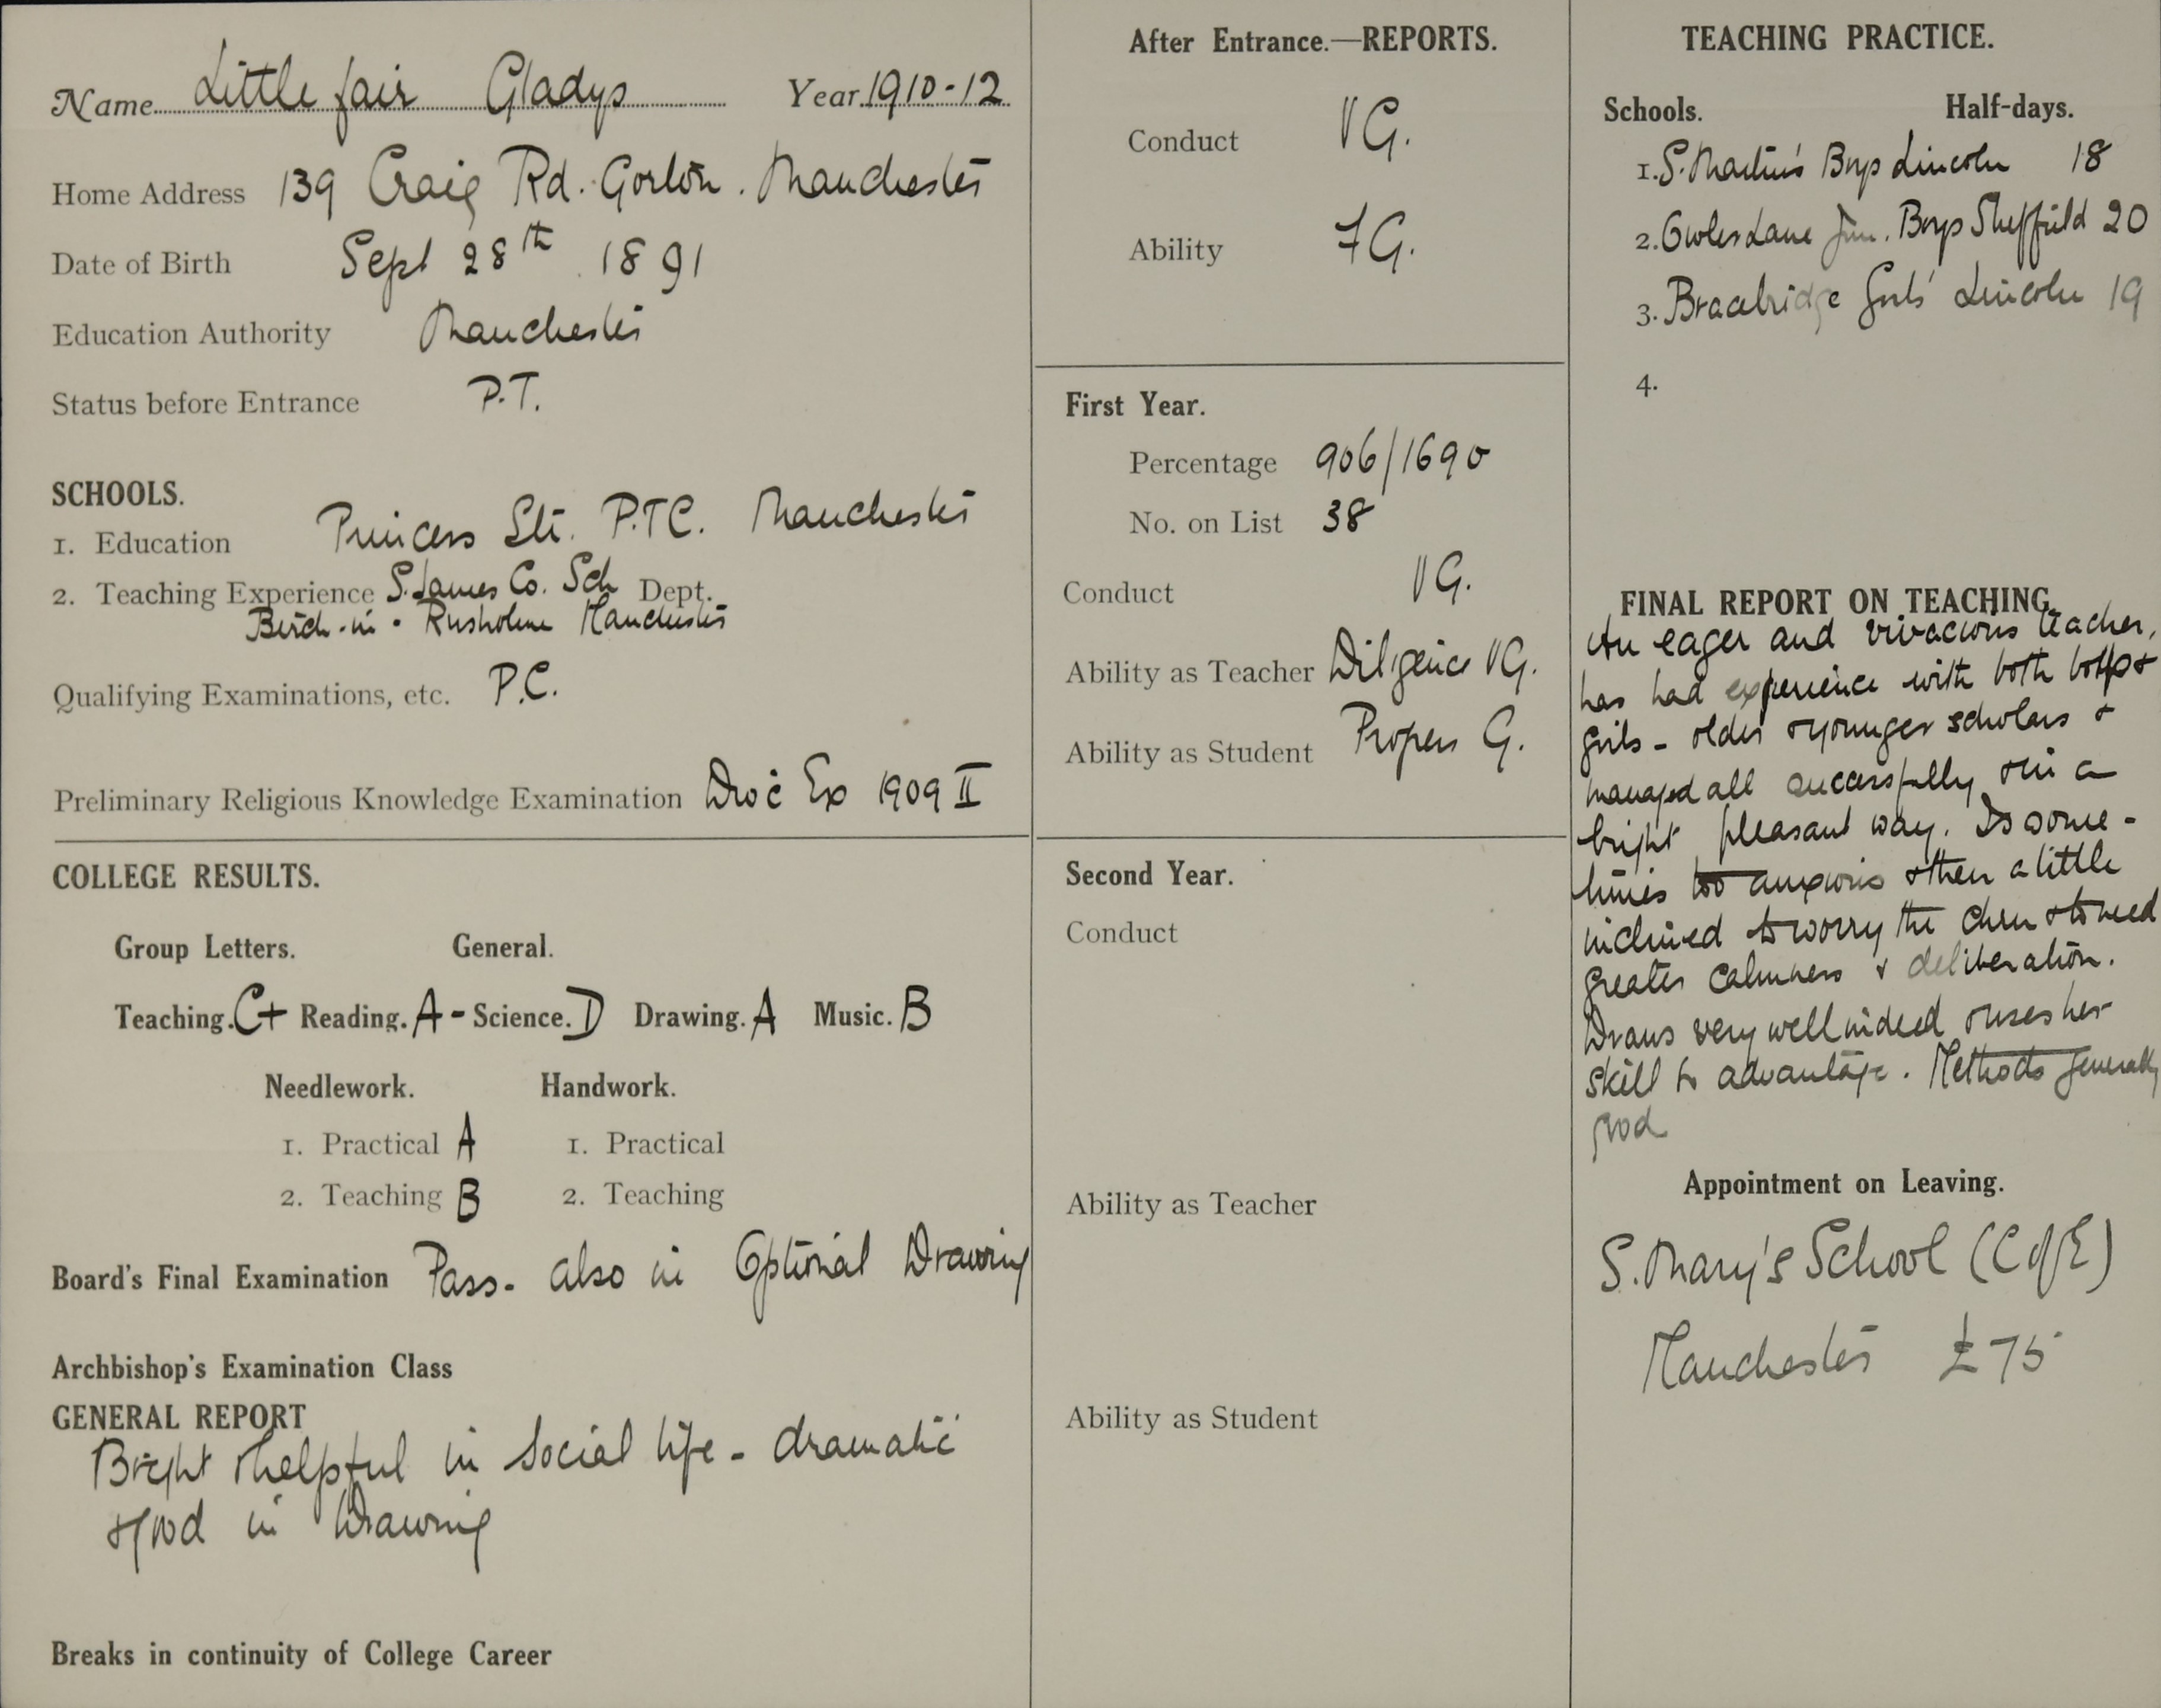 Name Littlefair Gladys Year 1910-12
Home Address 139 Craig Rd. Gorton. Manchester
Date of Birth Sept 28th 1891
Education Authority Manchester
Status before Entrance P.T.
SCHOOLS.
1. Education Princess Str. P.T.C. Manchester
2. Teaching Experience S. James Co. Sch Dept.
Birch-in-Rusholme Manchester
Qualifying Examinations, etc. P.C.
Preliminary Religious Knowledge Examination Dioc Ex 1909 II
COLLEGE RESULTS.
Group Letters. General.
Teaching. C+ Reading. A- Science. D Drawing. A Music. B
Needlework. Handwork.
1. Practical A 1. Practical
2. Teaching B 2. Teaching
Board's Final Examination Pass - also in Optional Drawing
Archbishop's Examination Class
GENERAL REPORT
Bright & helpful in social life - dramatic
& good in Drawing
Breaks in continuity of College Career
After Entrance.—REPORTS.
Conduct VG.
Ability FG.
First Year.
Percentage 906/1690
No. on List 38
Conduct VG.
Ability as Teacher Diligence VG.
Ability as Student Progress G.
Second Year.
Conduct
Ability as Teacher
Ability as Student
TEACHING PRACTICE.
Schools. Half-days.
1. S. Martin's Boys Lincoln 18
2. Owler Lane Jun. Boys Sheffield 20
3. Bracebridge Girls' Lincoln 19
4.
FINAL REPORT ON TEACHING.
An eager and vivacious teacher,
has had experience with both boys &
girls - older & younger scholars &
managed all successfully & in a
bright pleasant way. Is some-
times too anxious & then a little
inclined to worry the chn & to need
greater calmness & deliberation.
Draws very well indeed & uses her
skill to advantage. Methods generally
good
Appointment on Leaving.
S. Mary's School (C of E)
Manchester £75